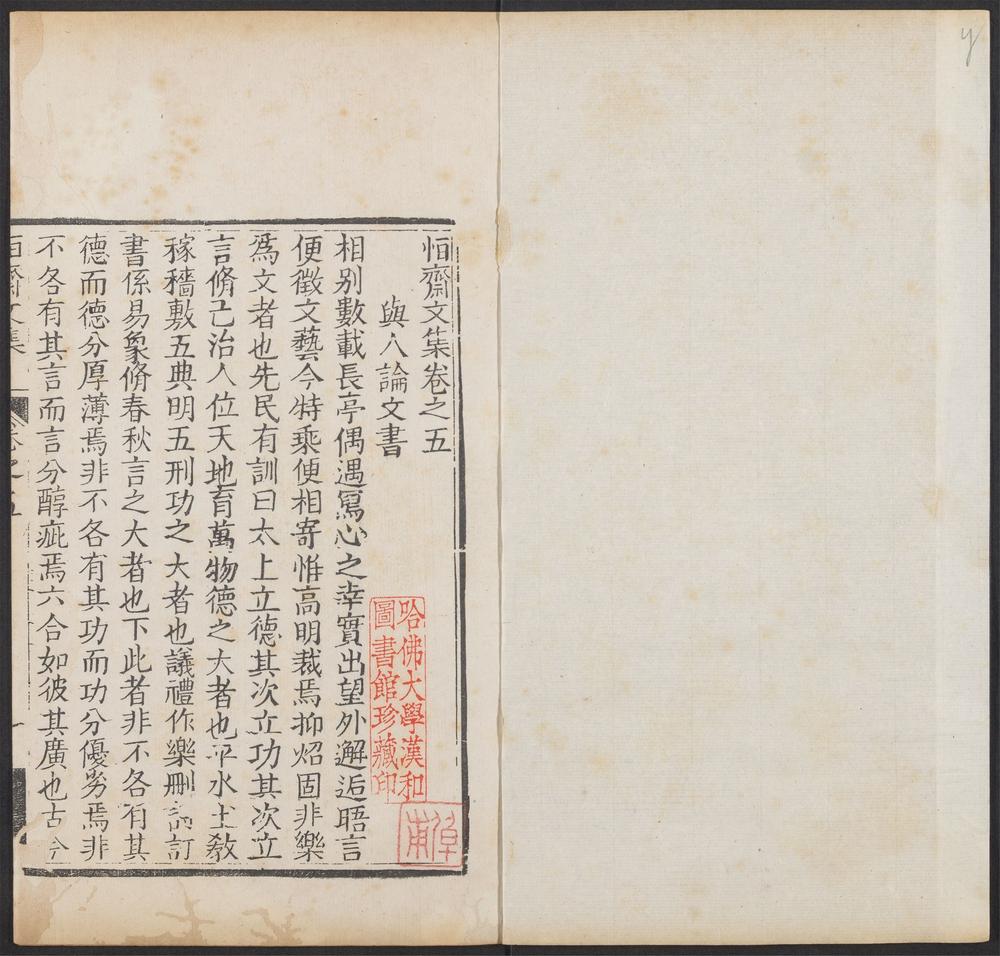 恒齋文集卷之五
與人論文書
相别數載長亭偶遇寫心之幸實出望外邂逅晤言
便徵文藝今特乘便相寄惟高明裁焉抑炤固非樂
爲文者也先民有訓曰太上立德其次立功其次立
言脩己治人位天地育萬物德之大者也平水土敎
稼穡敷五典明五刑功之大者也議禮作樂刪詩訂
書係易象脩春秋言之大者也下此者非不各有其
德而德分厚薄焉非不各有其功而功分優劣焉非
不各有其言而言分醇疵焉六合如彼其廣也古今
恒齋文集
卷之五
一
哈佛大學漢和
圖書館珍藏印